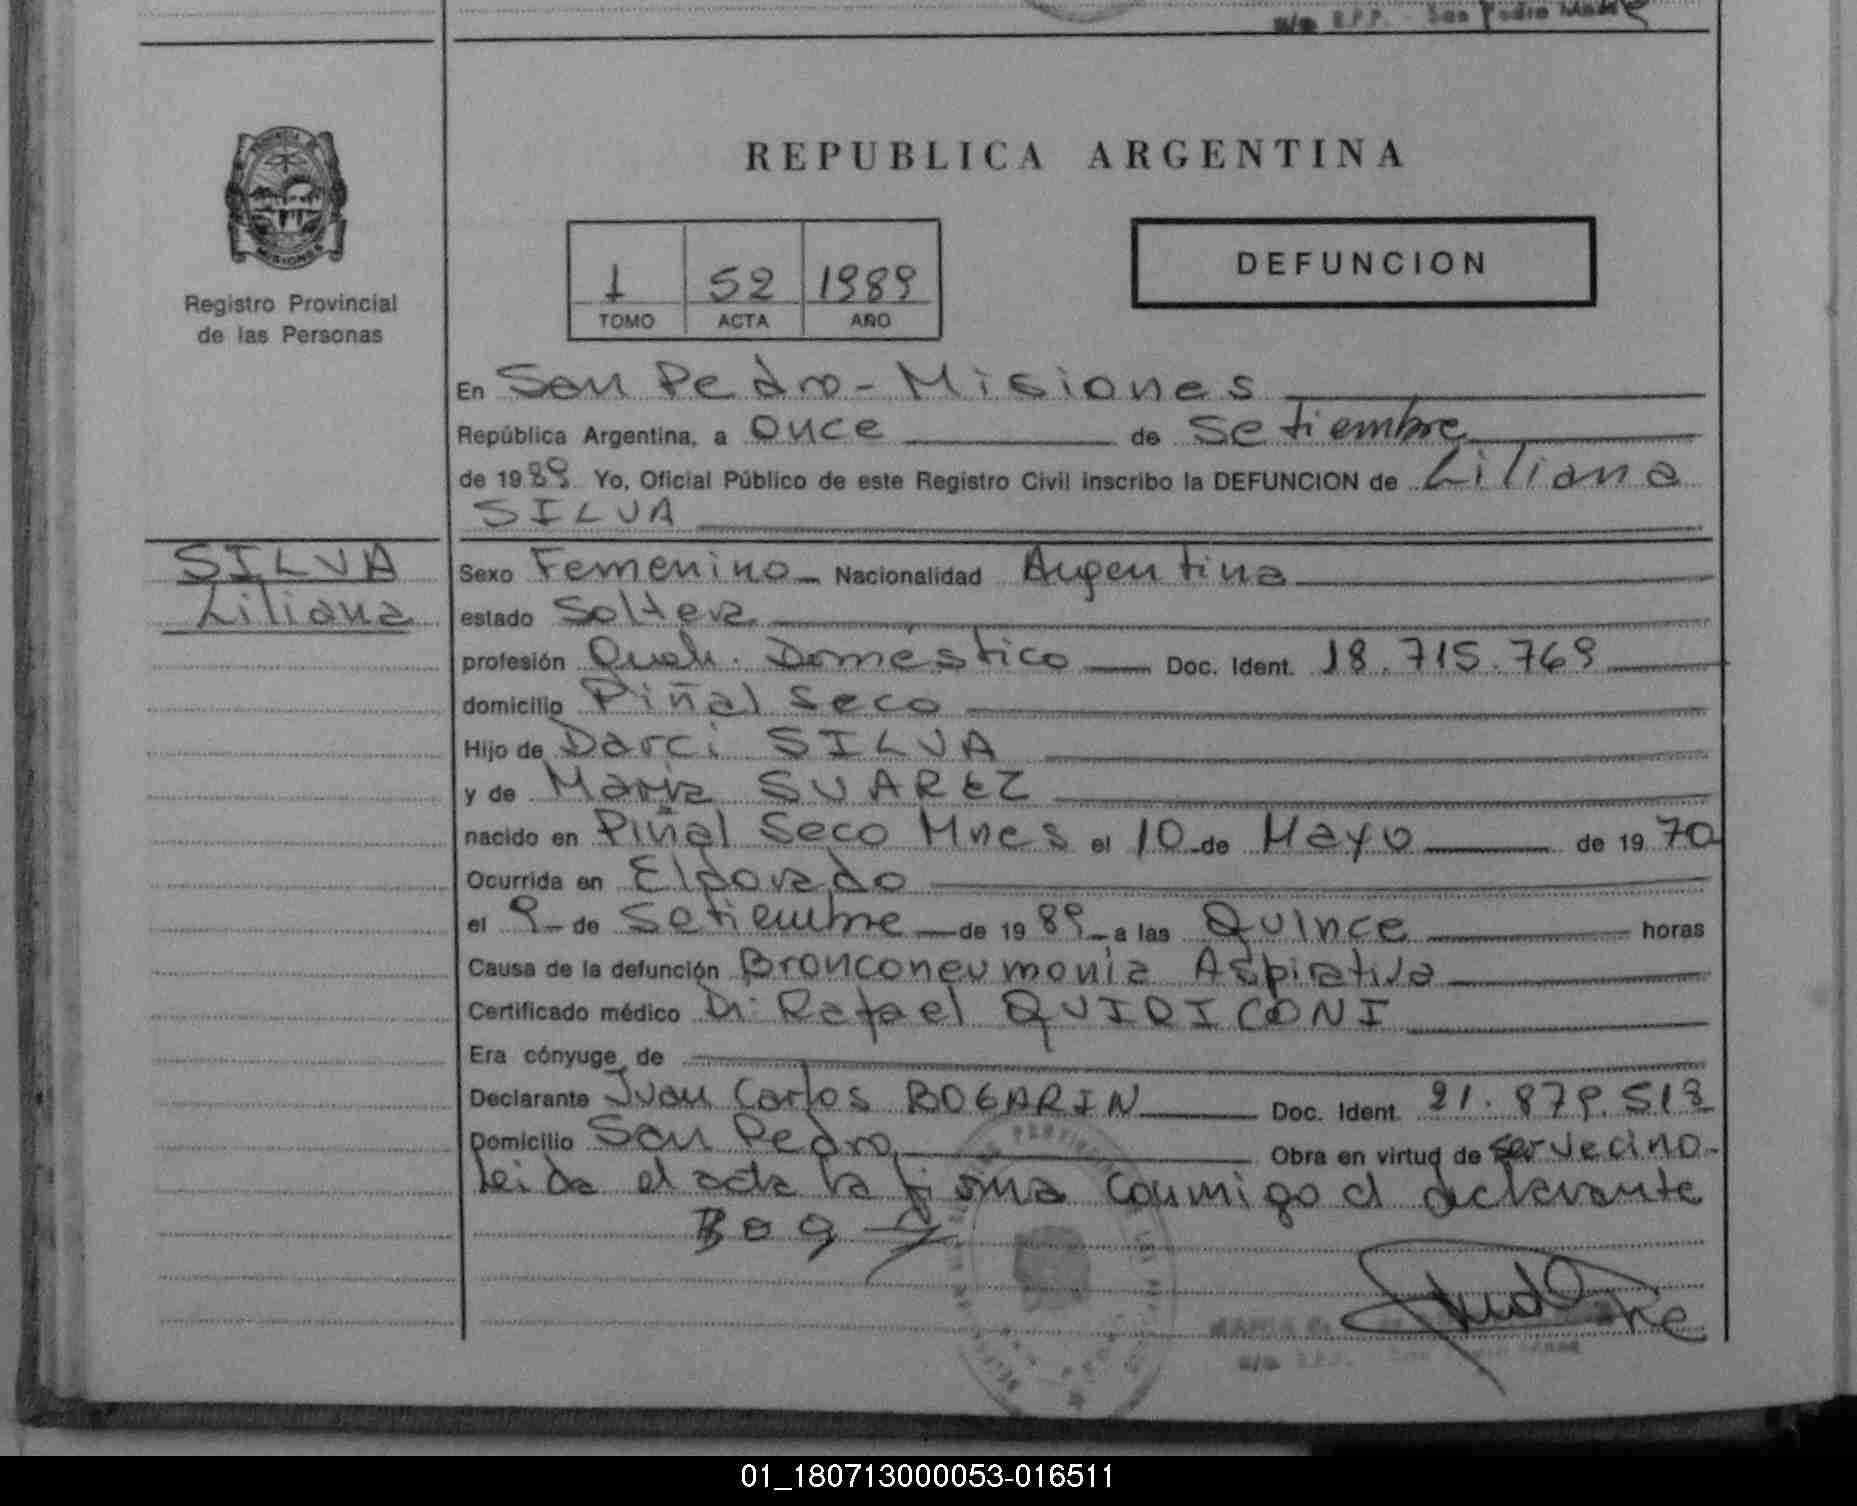 R.P.P. - San Pedro Mnes
REPUBLICA ARGENTINA
PROVINCIA
MISIONES
Registro Provincial
de las Personas
1 52 1989
TOMO ACTA AÑO
DEFUNCION
En San Pedro - Misiones
República Argentina, a Once de Setiembre
de 1989 Yo, Oficial Público de este Registro Civil inscribo la DEFUNCION de Liliana
SILVA
SILVA
Liliana
Sexo Femenino Nacionalidad Argentina
estado Soltera
profesión Queh. Doméstico Doc. Ident. 18.715.769
domicilio Piñal Seco
Hijo de Darci SILVA
y de Maria SUAREZ
nacido en Piñal Seco Mnes el 10 de Mayo de 1970
Ocurrida en Eldorado
el 9 de Setiembre de 1989 a las Quince horas
Causa de la defunción Bronconeumonia Aspirativa
Certificado médico Dr. Rafael QUIRICONI
Era cónyuge de
Declarante Juan Carlos BOGARIN Doc. Ident. 21.879.518
Domicilio San Pedro Obra en virtud de ser vecino-
leida el acta la firma conmigo el declarante
Bog
01_180713000053-016511